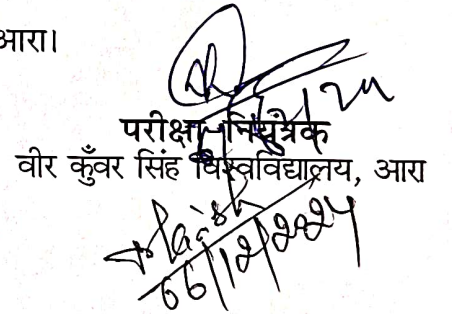 आरा।
परीक्षा नियंत्रक
वीर कुँवर सिंह विश्वविद्यालय, आरा
06/12/2024